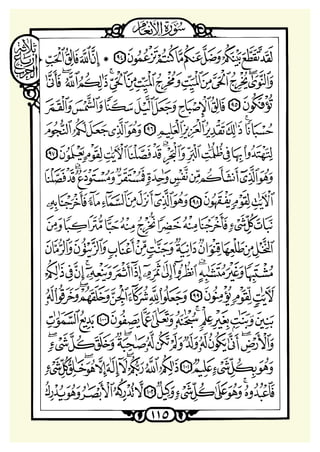 سُورَةُ الأَنْعَامِ
لَقَد تَّقَطَّعَ بَيْنَكُمْ وَضَلَّ عَنكُم مَّا كُنتُمْ تَزْعُمُونَ ٩٤ ۞ إِنَّ اللَّهَ فَالِقُ الْحَبِّ
وَالنَّوَىٰ يُخْرِجُ الْحَيَّ مِنَ الْمَيِّتِ وَمُخْرِجُ الْمَيِّتِ مِنَ الْحَيِّ ذَٰلِكُمُ اللَّهُ فَأَنَّىٰ
تُؤْفَكُونَ ٩٥ فَالِقُ الْإِصْبَاحِ وَجَعَلَ اللَّيْلَ سَكَنًا وَالشَّمْسَ وَالْقَمَرَ
حُسْبَانًا ذَٰلِكَ تَقْدِيرُ الْعَزِيزِ الْعَلِيمِ ٩٦ وَهُوَ الَّذِي جَعَلَ لَكُمُ النُّجُومَ
لِتَهْتَدُوا بِهَا فِي ظُلُمَاتِ الْبَرِّ وَالْبَحْرِ قَدْ فَصَّلْنَا الْآيَاتِ لِقَوْمٍ يَعْلَمُونَ ٩٧
وَهُوَ الَّذِي أَنشَأَكُم مِّن نَّفْسٍ وَاحِدَةٍ فَمُسْتَقَرٌّ وَمُسْتَوْدَعٌ قَدْ فَصَّلْنَا
الْآيَاتِ لِقَوْمٍ يَفْقَهُونَ ٩٨ وَهُوَ الَّذِي أَنزَلَ مِنَ السَّمَاءِ مَاءً فَأَخْرَجْنَا بِهِ
نَبَاتَ كُلِّ شَيْءٍ فَأَخْرَجْنَا مِنْهُ خَضِرًا نُّخْرِجُ مِنْهُ حَبًّا مُّتَرَاكِبًا وَمِنَ
النَّخْلِ مِن طَلْعِهَا قِنْوَانٌ دَانِيَةٌ وَجَنَّاتٍ مِّنْ أَعْنَابٍ وَالزَّيْتُونَ وَالرُّمَّانَ
مُشْتَبِهًا وَغَيْرَ مُتَشَابِهٍ انظُرُوا إِلَىٰ ثَمَرِهِ إِذَا أَثْمَرَ وَيَنْعِهِ إِنَّ فِي ذَٰلِكُمْ
لَآيَاتٍ لِّقَوْمٍ يُؤْمِنُونَ ٩٩ وَجَعَلُوا لِلَّهِ شُرَكَاءَ الْجِنَّ وَخَلَقَهُمْ وَخَرَقُوا لَهُ
بَنِينَ وَبَنَاتٍ بِغَيْرِ عِلْمٍ سُبْحَانَهُ وَتَعَالَىٰ عَمَّا يَصِفُونَ ١٠٠ بَدِيعُ السَّمَاوَاتِ
وَالْأَرْضِ أَنَّىٰ يَكُونُ لَهُ وَلَدٌ وَلَمْ تَكُن لَّهُ صَاحِبَةٌ وَخَلَقَ كُلَّ شَيْءٍ
وَهُوَ بِكُلِّ شَيْءٍ عَلِيمٌ ١٠١ ذَٰلِكُمُ اللَّهُ رَبُّكُمْ لَا إِلَٰهَ إِلَّا هُوَ خَالِقُ كُلِّ شَيْءٍ
فَاعْبُدُوهُ وَهُوَ عَلَىٰ كُلِّ شَيْءٍ وَكِيلٌ ١٠٢ لَّا تُدْرِكُهُ الْأَبْصَارُ وَهُوَ يُدْرِكُ
١١٥